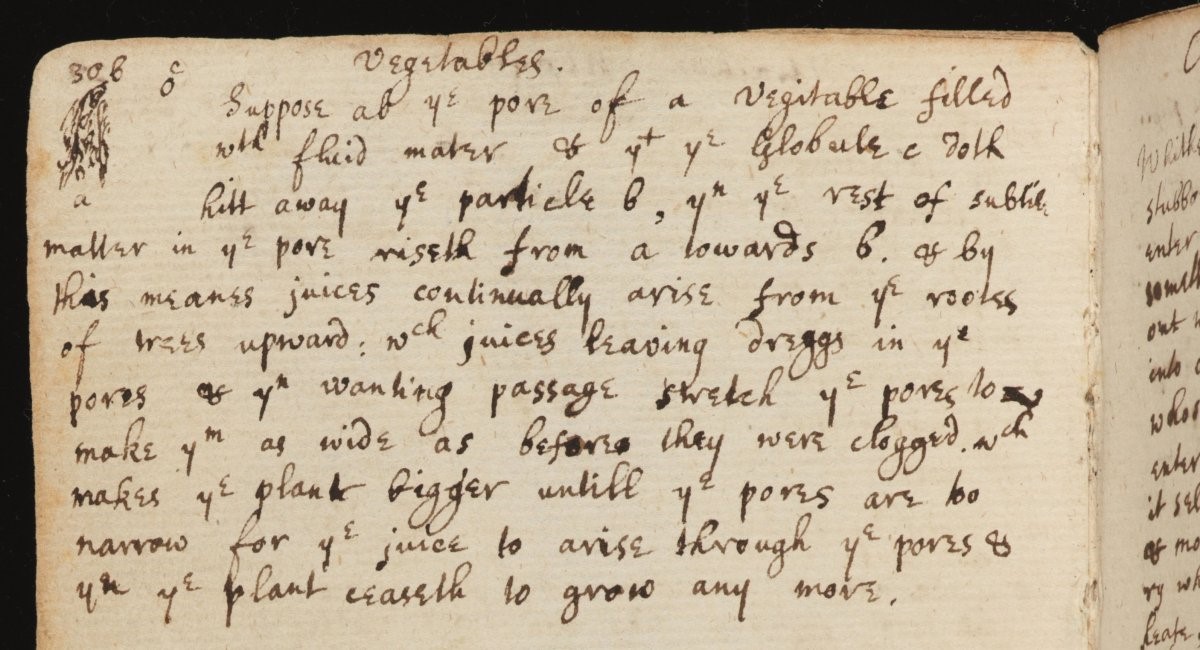 Vegetables.
30 b c
Suppose ab yᵉ pore of a Vegitable filled
wᵗʰ fluid mater & yᵗ yᵉ Globule c doth
a hitt away yᵉ particle b, yⁿ yᵉ rest of subtile
matter in yᵉ pore riseth from a towards b. & by
this meanes juices continually arise from yᵉ rootes
of trees upward: wᶜʰ juices leaving dreggs in yᵉ
pores & yⁿ wanting passage stretch yᵉ pores to
make yᵐ as wide as before they were clogged. wᶜʰ
makes yᵉ plant bigger untill yᵉ pores are too
narrow for yᵉ juice to arise through yᵉ pores &
yⁿ yᵉ plant ceaseth to grow any more.
stubbo
enter
someth
out
into
whor
enter
it sel
& mo
ry wh
leafe